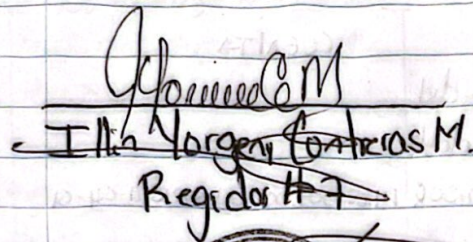 Illin Yorgeny Contreras M.
Regidor # 7